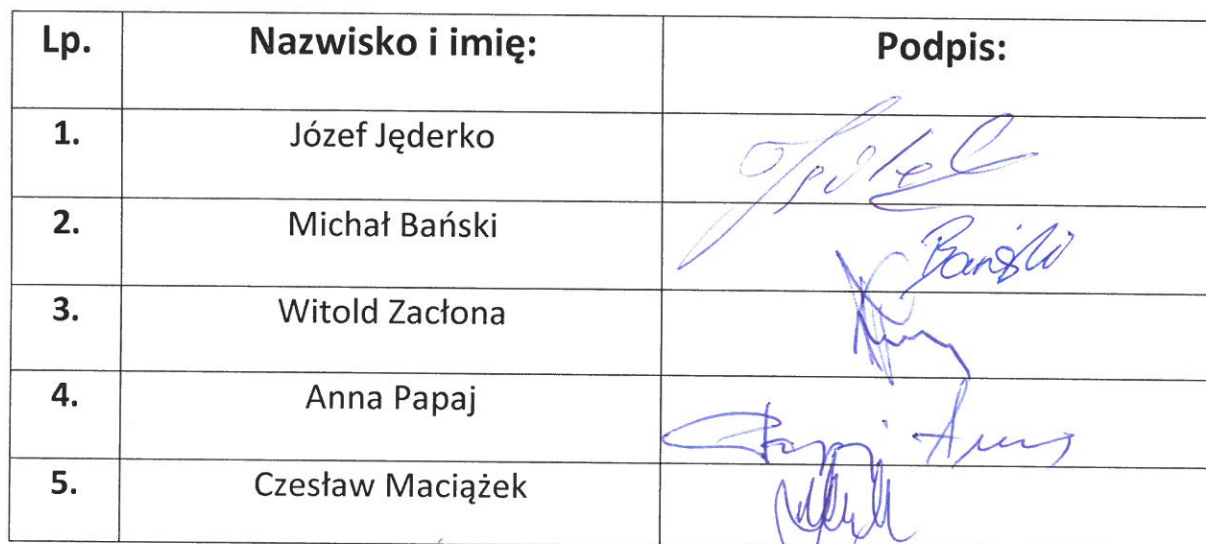 Lp. Nazwisko i imię: Podpis:
1. Józef Jęderko
2. Michał Bański Bański
3. Witold Zacłona
4. Anna Papaj Papaj Anna
5. Czesław Maciążek